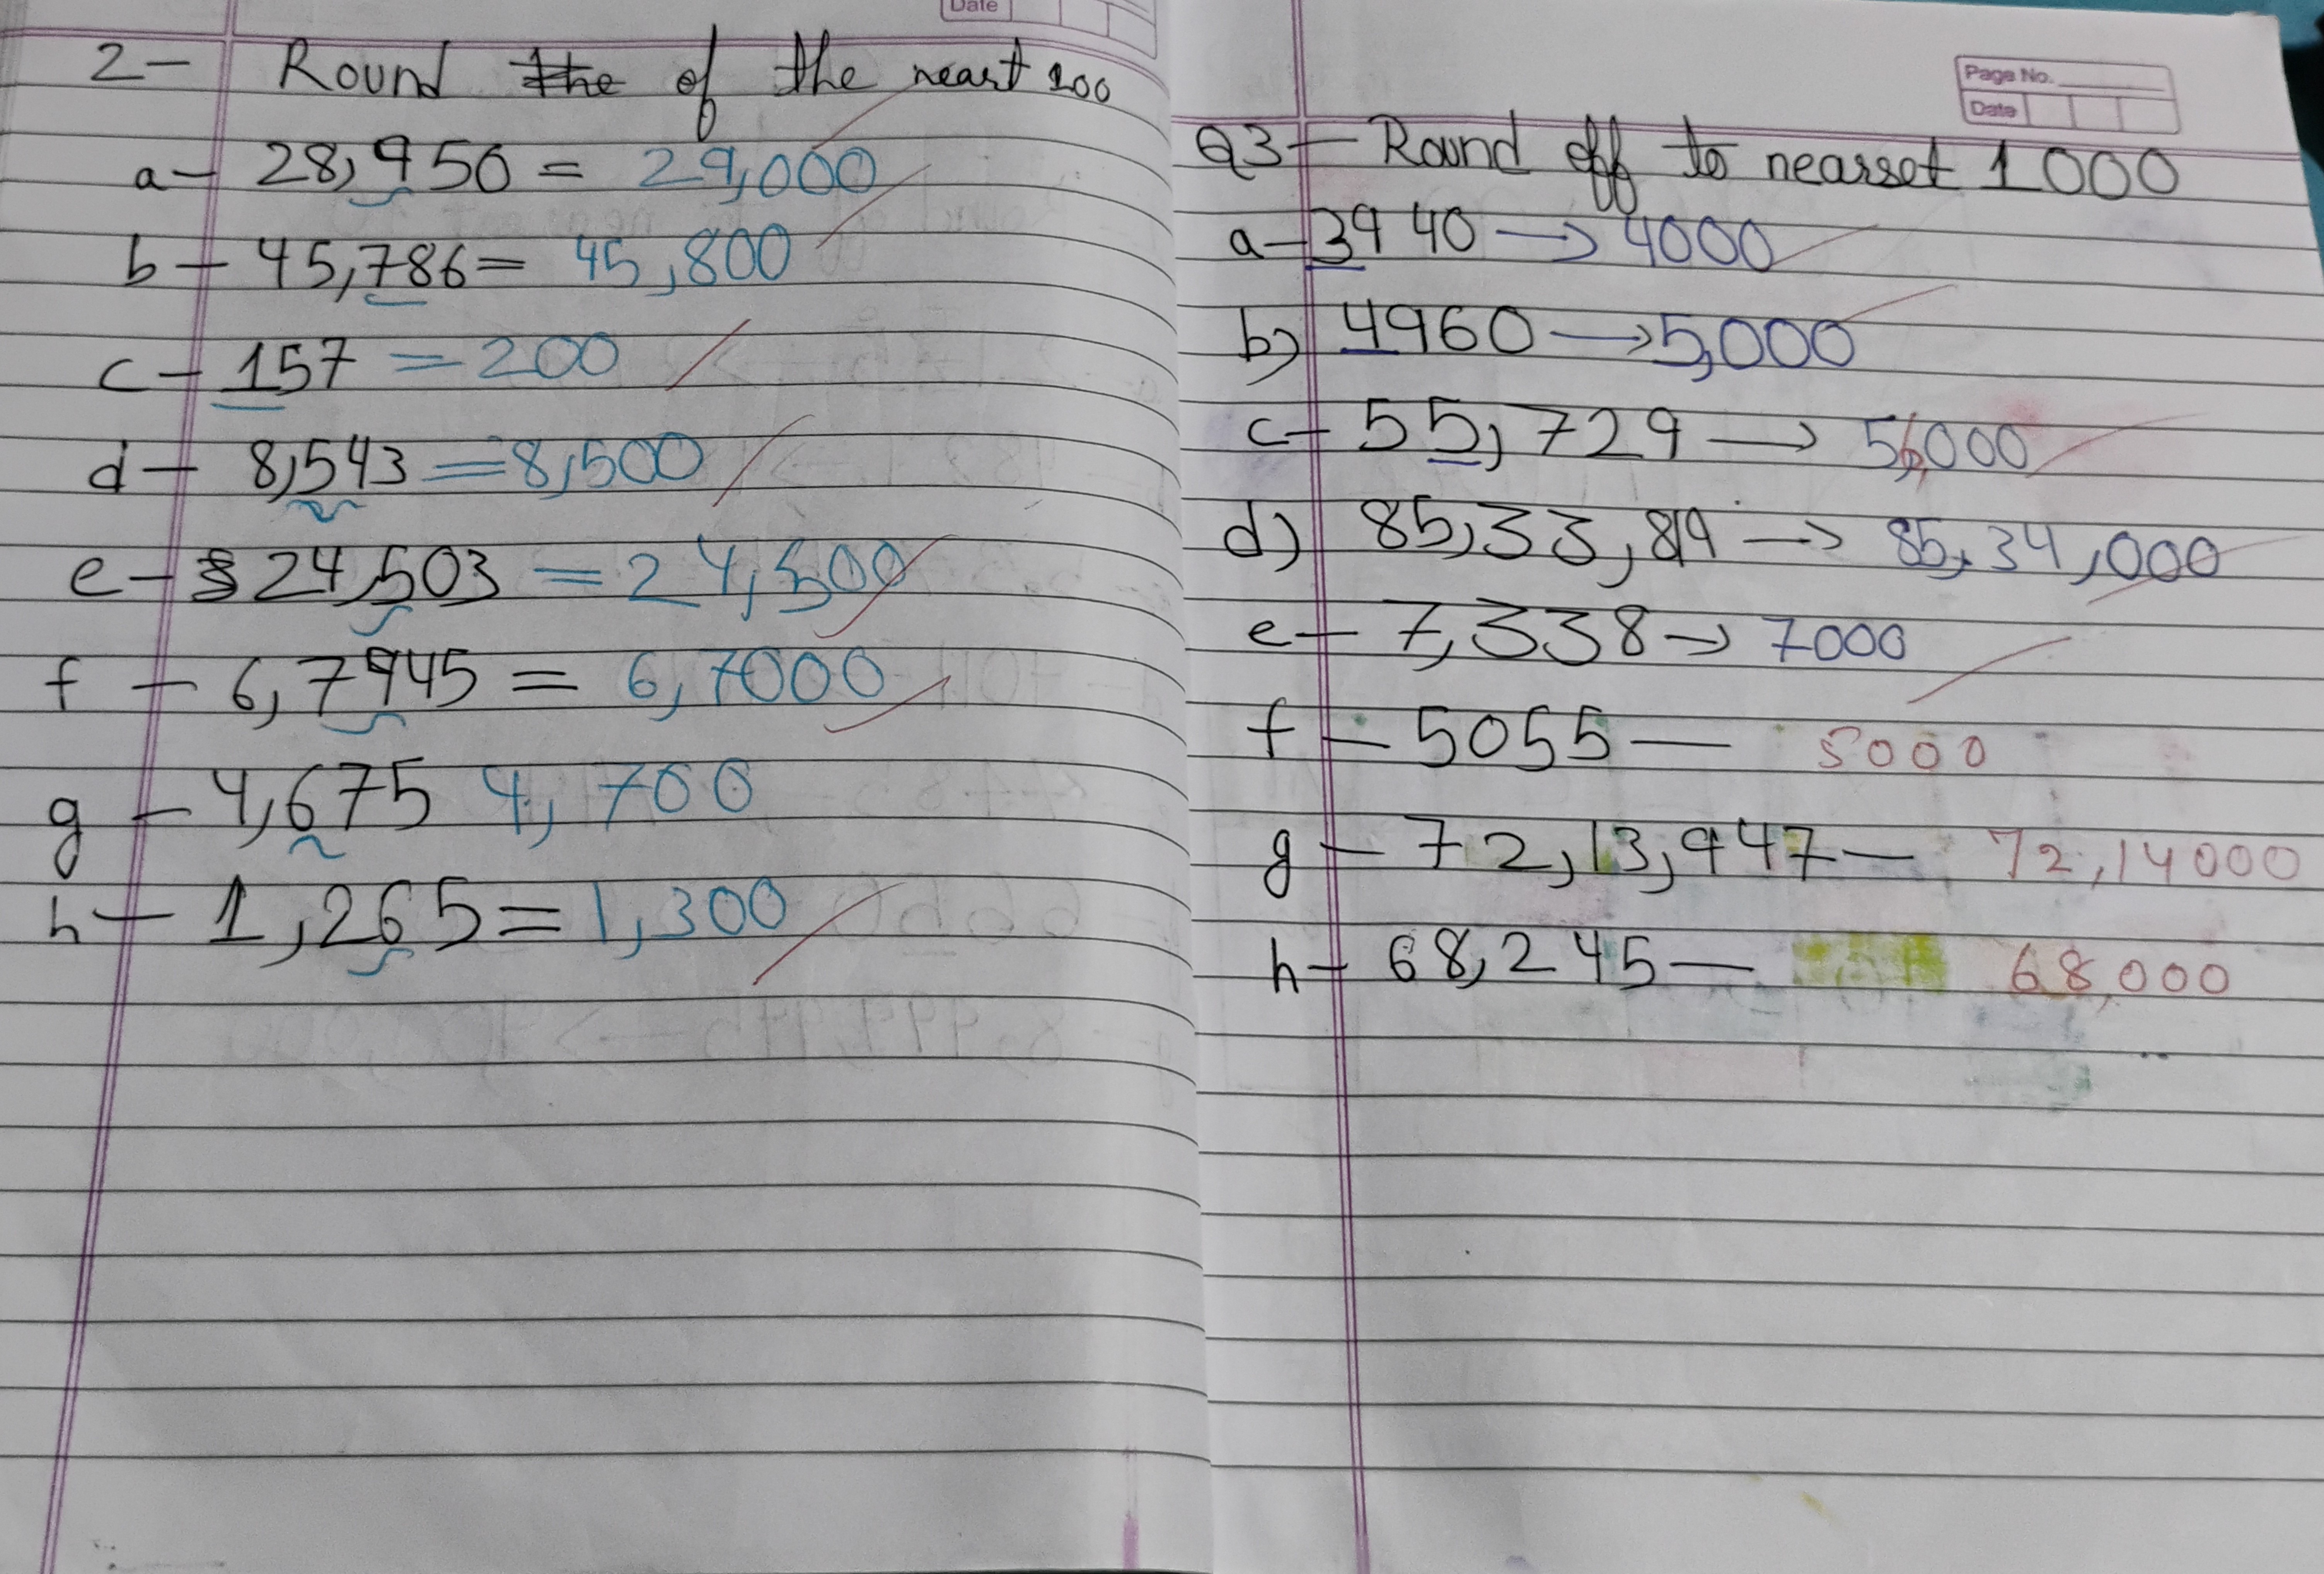 Date
2- Round the of the neart 100
a- 28,950 = 29,000
b- 45,786= 45,800
c- 157 = 200
d- 8,543 =8,500
e- 24,503 = 24,500
f - 6,7945 = 6,7000
g - 4,675 4,700
h- 1,265=1,300
Page No.
Date
Q3- Round off to nearset 1000
a- 3940 → 4000
b) 4960 → 5,000
c- 55,729 → 56,000
d) 85,33,819 → 85,34,000
e- 7,338 → 7000
f - 5055 - 5000
g - 72,13,947- 72,14000
h- 68,245- 68,000